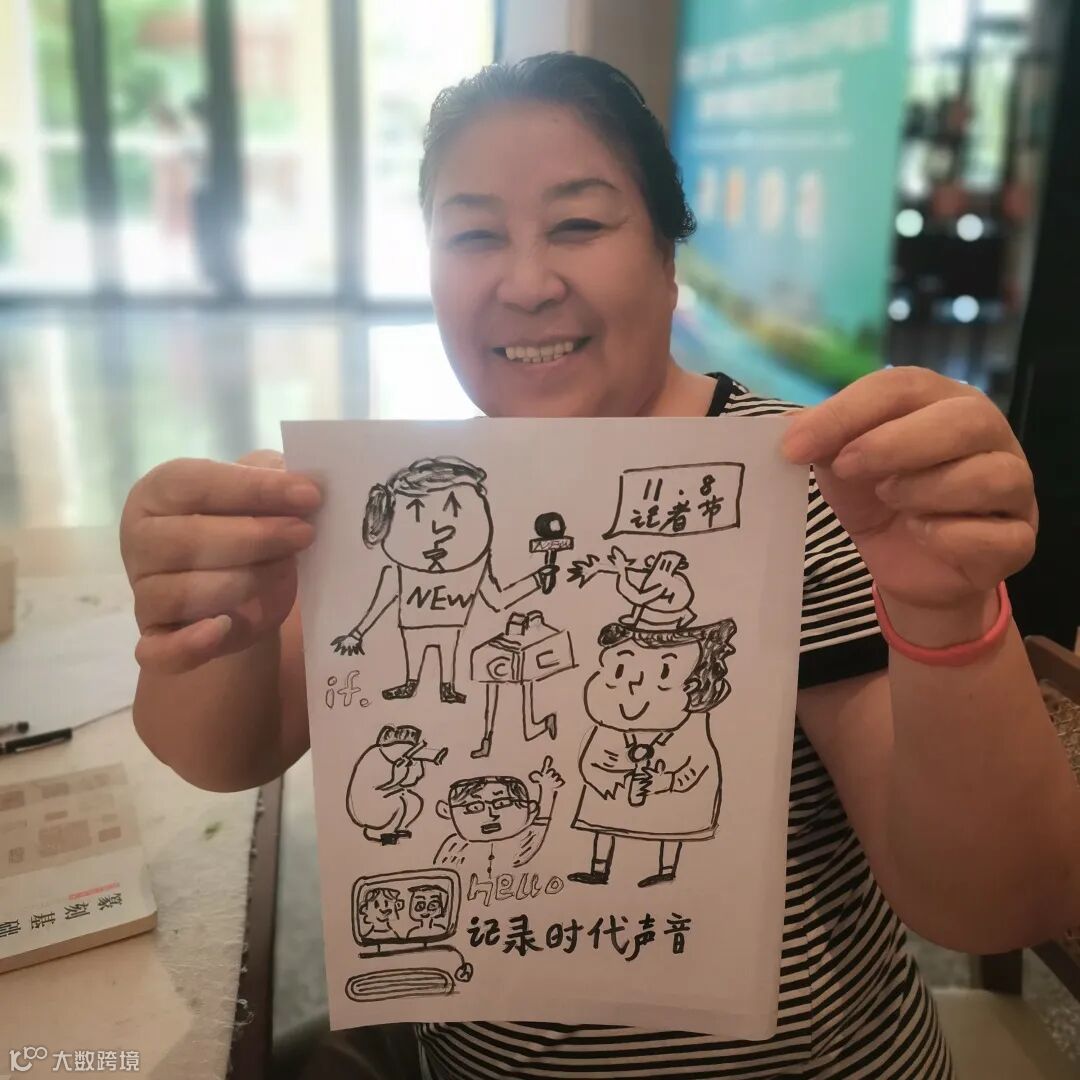 11.8
记者节
NEW
C
if.
hello
记录时代声音
篆刻基础
大数跨境